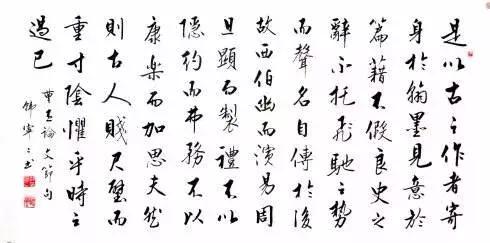 是以古之作者寄
身於翰墨見意於
篇籍不假良史之
辭不托飛馳之勢
而聲名自傳於後
故西伯幽而演易周
旦顯而製禮不以
隱約而弗務不以
康樂而加思夫然
則古人賤尺璧而
重寸陰懼乎時之
過已
曹丕論文節句
書